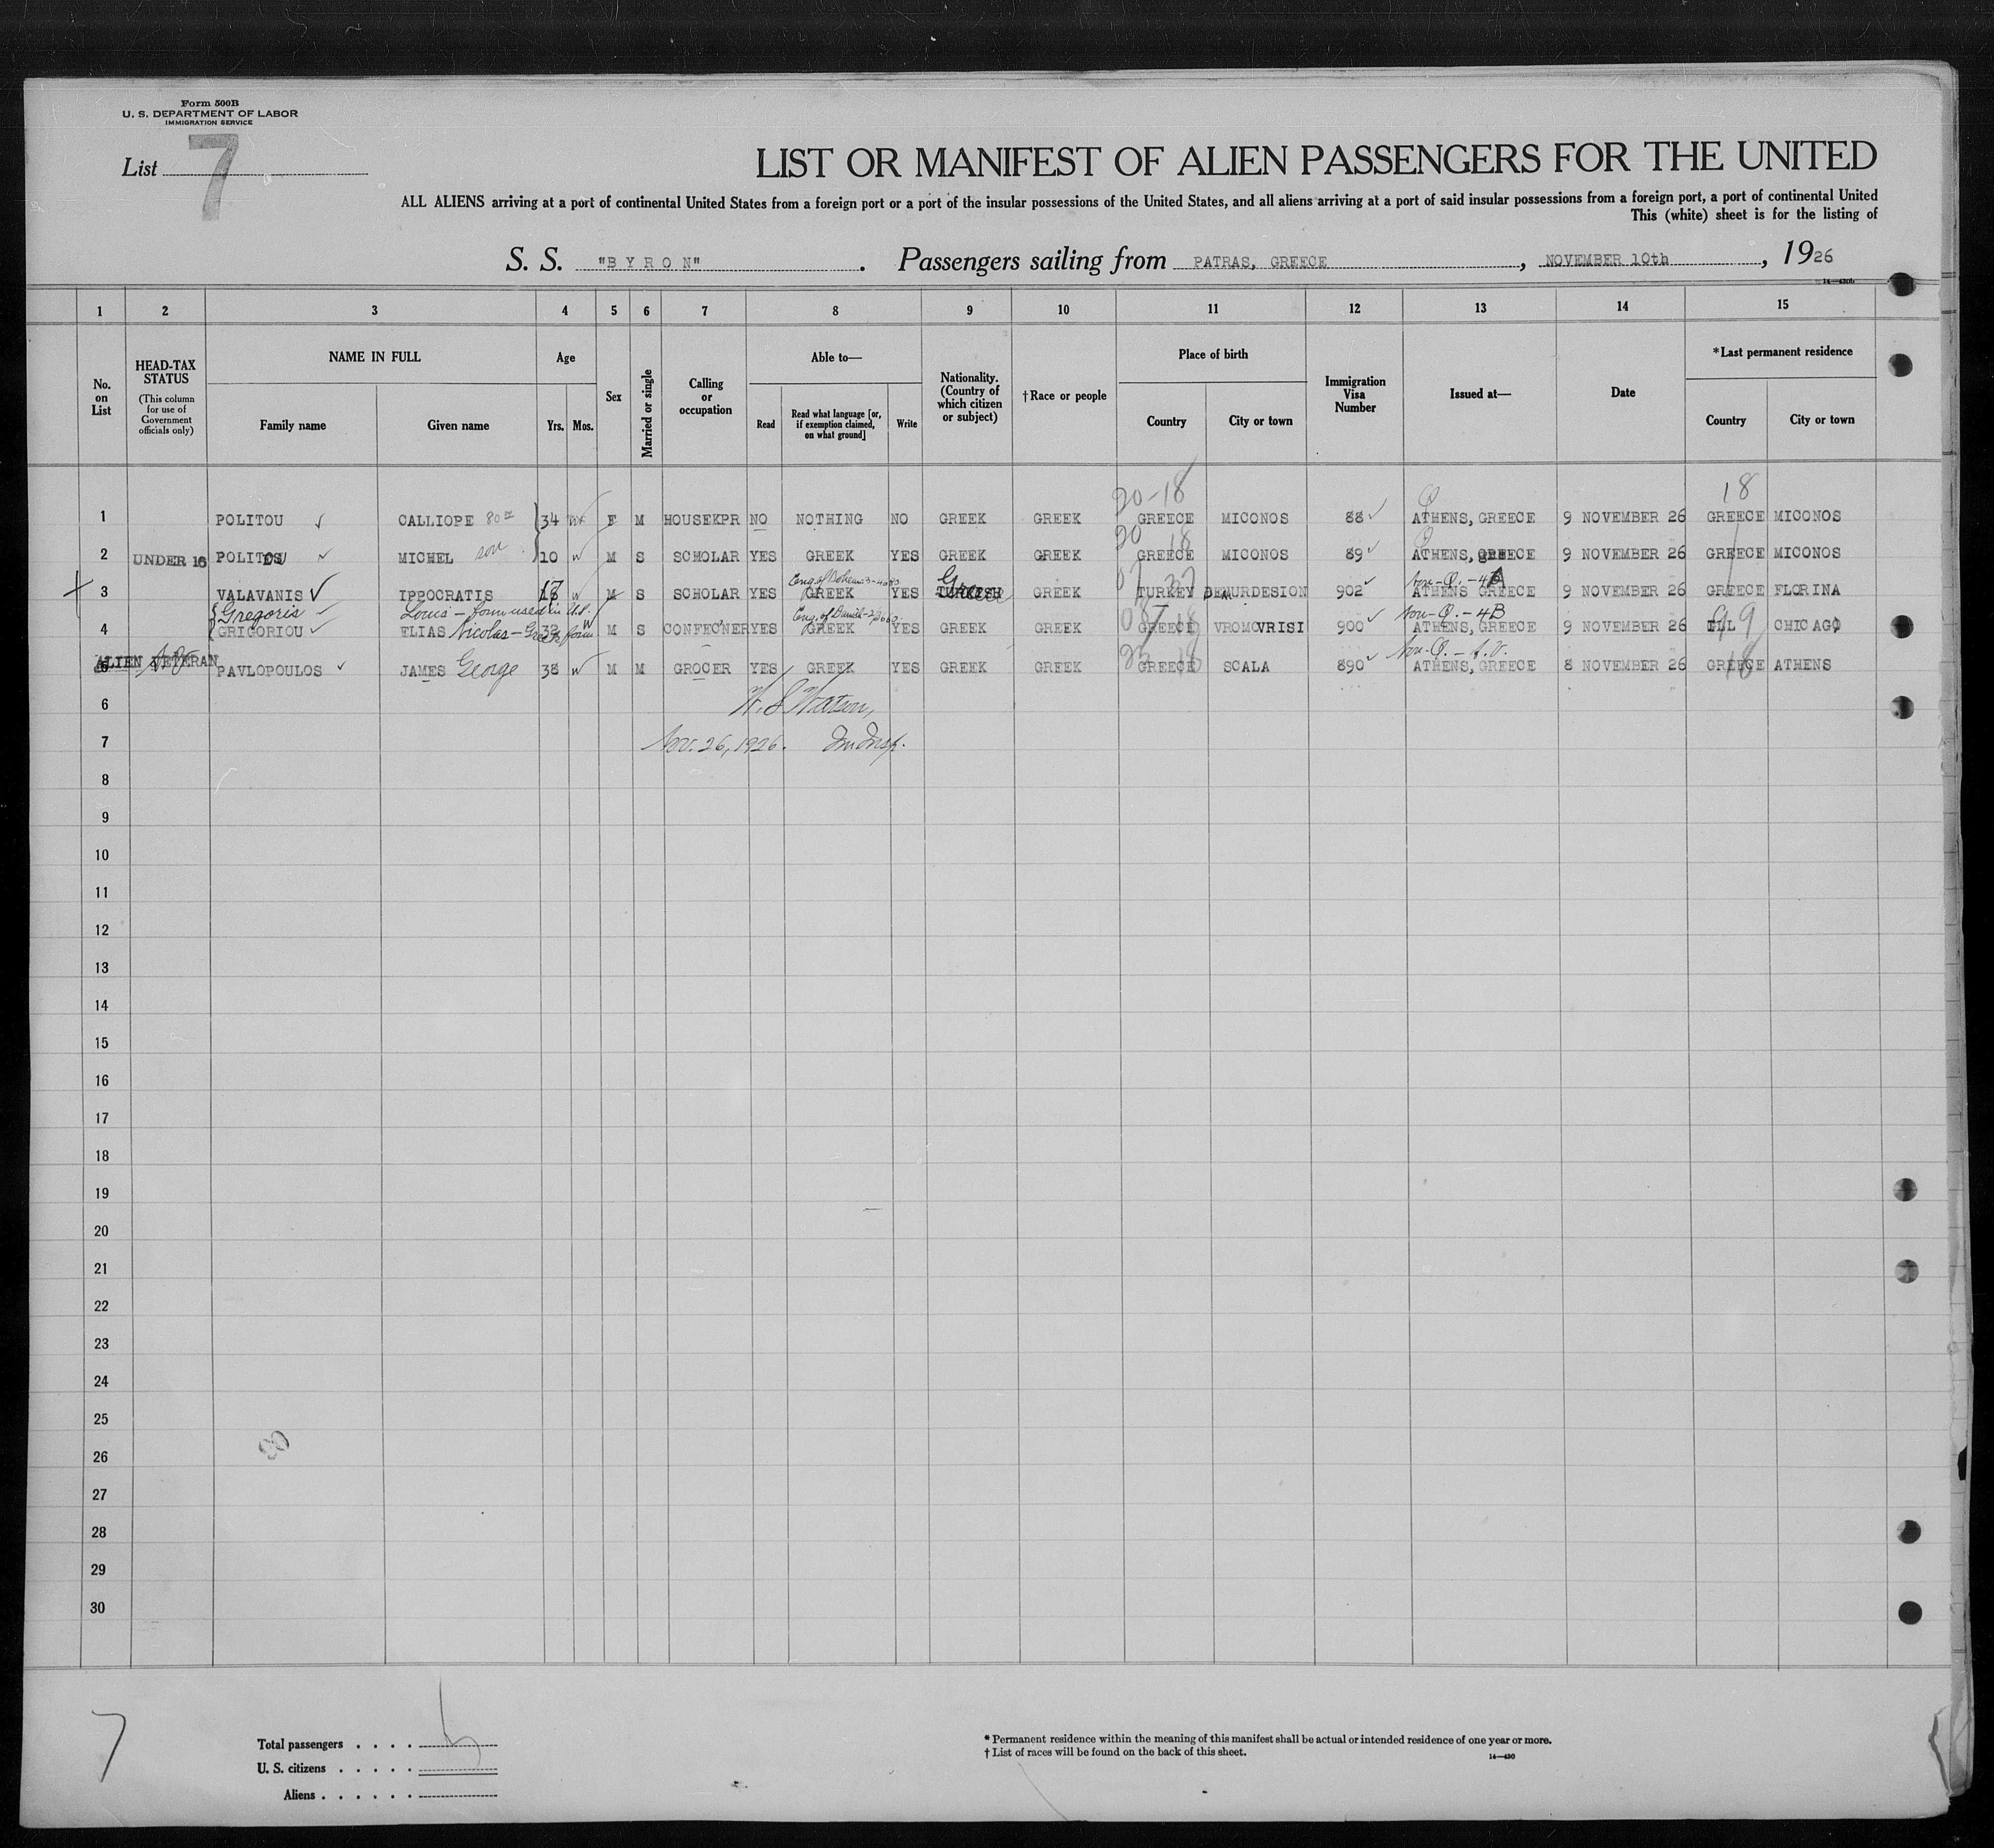 Form 500B
U. S. DEPARTMENT OF LABOR
IMMIGRATION SERVICE
List 7
LIST OR MANIFEST OF ALIEN PASSENGERS FOR THE UNITED
ALL ALIENS arriving at a port of continental United States from a foreign port or a port of the insular possessions of the United States, and all aliens arriving at a port of said insular possessions from a foreign port, a port of continental United
This (white) sheet is for the listing of
S. S. "BYRON". Passengers sailing from PATRAS, GREECE, NOVEMBER 10th, 1926
14—430b
1 2 3 4 5 6 7 8 9 10 11 12 13 14 15
No. on List
HEAD-TAX STATUS
(This column for use of Government officials only)
NAME IN FULL
Family name
Given name
Age
Yrs. Mos.
Sex
Married or single
Calling or occupation
Able to—
Read
Read what language [or, if exemption claimed, on what ground]
Write
Nationality. (Country of which citizen or subject)
†Race or people
Place of birth
Country
City or town
Immigration Visa Number
Issued at—
Date
*Last permanent residence
Country
City or town
20-18 Q 18
1 POLITOU CALLIOPE 34 F M HOUSEKPR NO NOTHING NO GREEK GREEK GREECE MICONOS 88 ATHENS, GREECE 9 NOVEMBER 26 GREECE MICONOS
20 18 Q
2 UNDER 16 POLITOU MICHEL son 10 w M S SCHOLAR YES GREEK YES GREEK GREEK GREECE MICONOS 89 ATHENS, GREECE 9 NOVEMBER 26 GREECE MICONOS
Non-Q.-4
3 VALAVANIS IPPOCRATIS 17 w M S SCHOLAR YES GREEK YES Greece GREEK TURKEY DEMURDESION 902 ATHENS GREECE 9 NOVEMBER 26 GREECE FLORINA
Gregoris Louis - form used in Non-Q.-4B
4 GRIGORIOU ELIAS Nicolas - Greek form w M S CONFECNER YES GREEK YES GREEK GREEK GREECE VROMOVRISI 900 ATHENS, GREECE 9 NOVEMBER 26 ILL CHICAGO
Non-Q.-A.V.
5 ALIEN VETERAN PAVLOPOULOS JAMES George 38 w M M GROCER YES GREEK YES GREEK GREEK GREECE SCALA 890 ATHENS, GREECE 8 NOVEMBER 26 GREECE ATHENS
6 W. S. Watson,
7 Nov. 26, 1926. Im Insp.
8
9
10
11
12
13
14
15
16
17
18
19
20
21
22
23
24
25
26
27
28
29
30
7
Total passengers
U. S. citizens
Aliens
* Permanent residence within the meaning of this manifest shall be actual or intended residence of one year or more.
† List of races will be found on the back of this sheet.
14—430